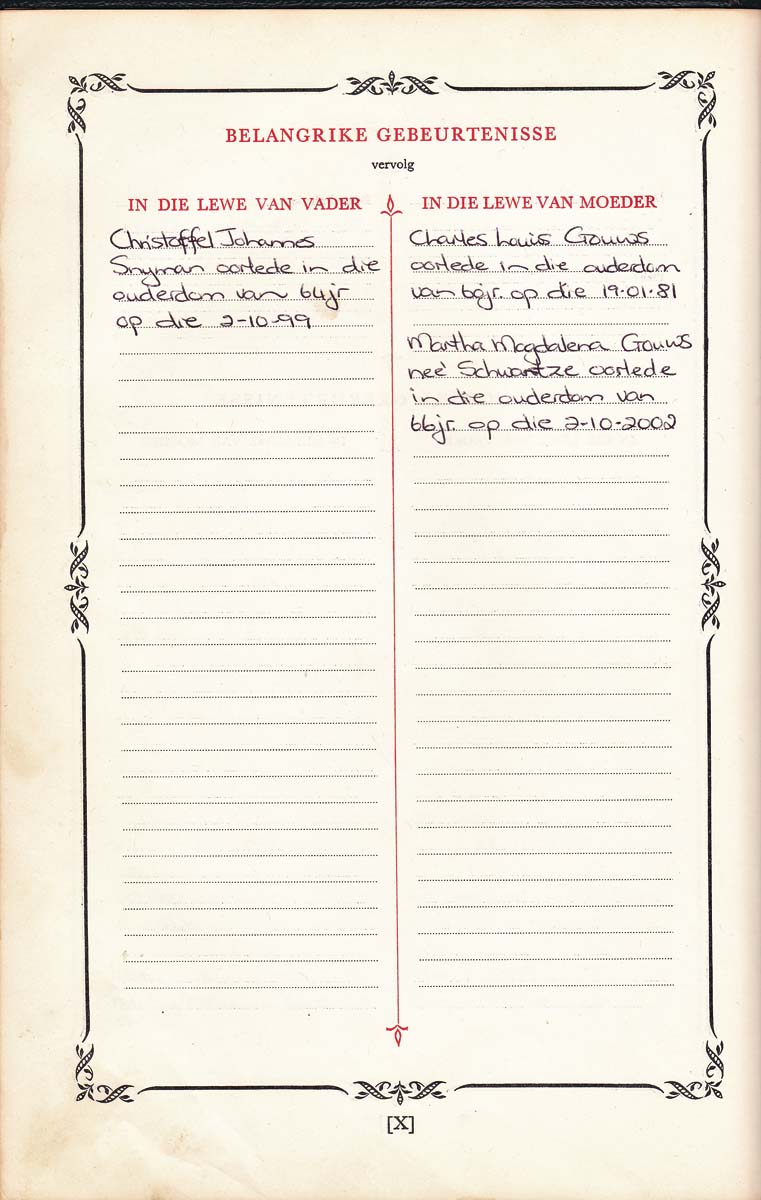 BELANGRIKE GEBEURTENISSE
vervolg
IN DIE LEWE VAN VADER
Christoffel Johannes
Snyman oorlede in die
ouderdom van 64jr
op die 2-10-99
IN DIE LEWE VAN MOEDER
Charles Louis Gouws
oorlede in die ouderdom
van jr. op die 19.01.81
Martha Magdalena Gouws
neé Schwartze oorlede
in die ouderdom van
66jr. op die 2-10-2002
[X]